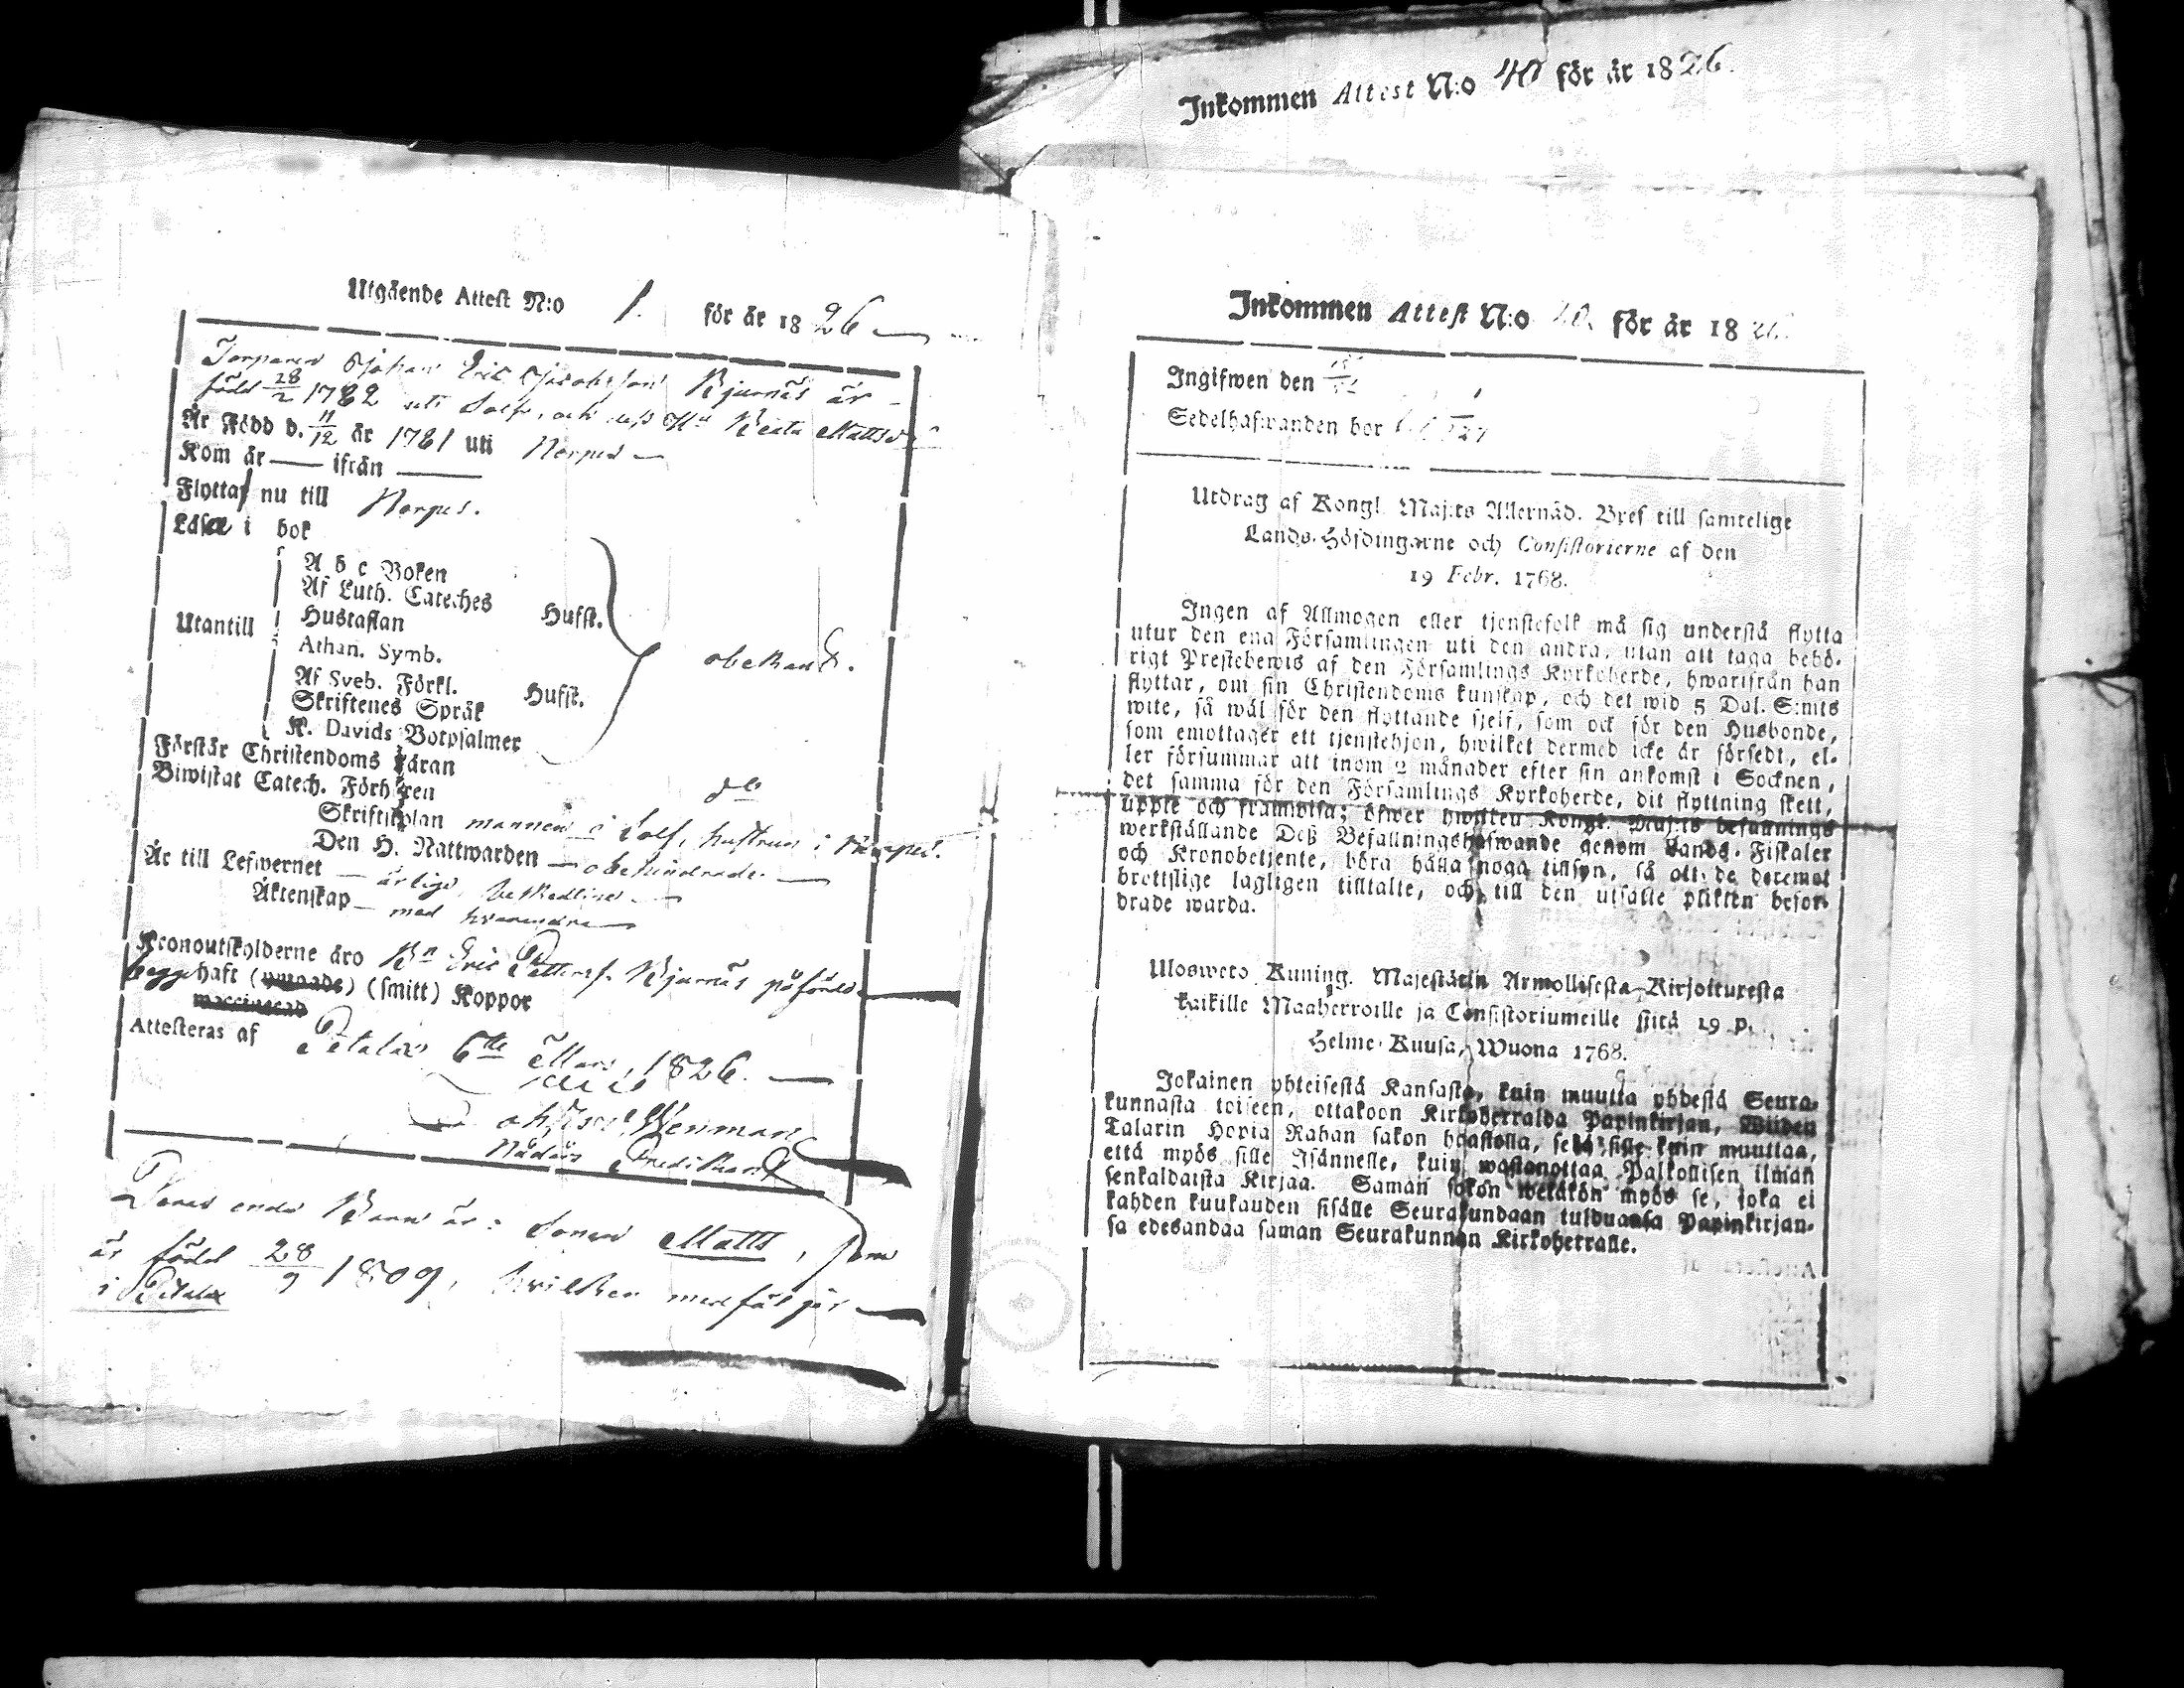 Utgående Attest N:o 1. för år 1826
Torparen Johan Eric Jacobsson Bjurnäs är
född 28/2 1782 uti Solf, och dess Hu Beata Mattsd:r
Är Född d. 11/12 år 1781 uti Nerpes
Kom år — ifrån —
Flyttar nu till Nerpes.
Läsa i bok
A b c Boken
Af Luth. Cateches Husst.
Utantill Hustaflan
Athan. Symb. obekant.
Af Sveb. Förkl. Husst.
Skriftenes Språk
K. Davids Botpsalmer
Förstår Christendoms Läran
Biwistat Catech. Förhören do
Skriftskolan mannen i Solf, hustrun i Nerpes.
Den H. Nattwarden — obehindrade. —
Är till Lefwernet — ärlige, beskedlige —
Äktenskap — med hvarandra —
Kronoutskylderne äro Bn Eric Petterss. Bjurnäs påförde
begge haft (smitt) Koppor
Attesteras af Petalax 6te Mars, 1826. —
Wenman
Nådårs Predikant
Deras enda Barn är: Sonen Matts, som
är född 28/9 1809, hvilken medföljer
i Petalax
Inkommen Attest N:o 40 för år 1826.
Inkommen Attest N:o 40. för år 1826.
Ingifwen den
Sedelhafwanden bor
Utdrag af Kongl. Maj:ts Allernåd. Bref till samtelige
Lands-Höfdingarne och Consistorierne af den
19 Febr. 1768.
Ingen af Allmogen eller tjenstefolk må sig understå flytta
utur den ena Församlingen uti den andra, utan att taga behö-
rigt Prestebewis af den Församlings Kyrkoherde, hwarifrån han
flyttar, om sin Christendoms kunskap, och det wid 5 Dal. S:mts
wite, så wäl för den flyttande sjelf, som ock för den Husbonde,
som emottager ett tjenstehjon, hwilket dermed icke är försedt, el-
ler försummar att inom 2 månader efter sin ankomst i Socknen,
det samma för den Församlings Kyrkoherde, dit flyttning skett,
uppte och framwisa; öfwer hwilken Kongl. Maj:ts befallnings
werkställande Deß Befallningshafwande genom Lands-Fiskaler
och Kronobetjente, böra hålla noga tillsyn, så att de deremot
brottslige lagligen tilltalte, och till den utsatte plikten befor-
drade warda.
Ulosweto Kuning. Majestätin Armollisesta Kirjoituxesta
kaikille Maaherroille ja Consistoriumeille siitä 19 p.
Helme-Kuusa, Wuona 1768.
Jokainen yhteisestä Kansasta, kuin muutta yhdestä Seura-
kunnasta toiseen, ottakoon Kirkoherralda Papinkirjan, Wiiden
Talarin Hopia Rahan sakon haastolla, sekä sille kuin muuttaa,
että myös sille Isännelle, kuin wastanottaa Palkollisen ilman
senkaldaista Kirjaa. Saman sakon wetäkön myös se, joka ei
kahden kuukauden sisälle Seurakundaan tulduansa Papinkirjan-
sa edesandaa saman Seurakunnan Kirkoherralle.